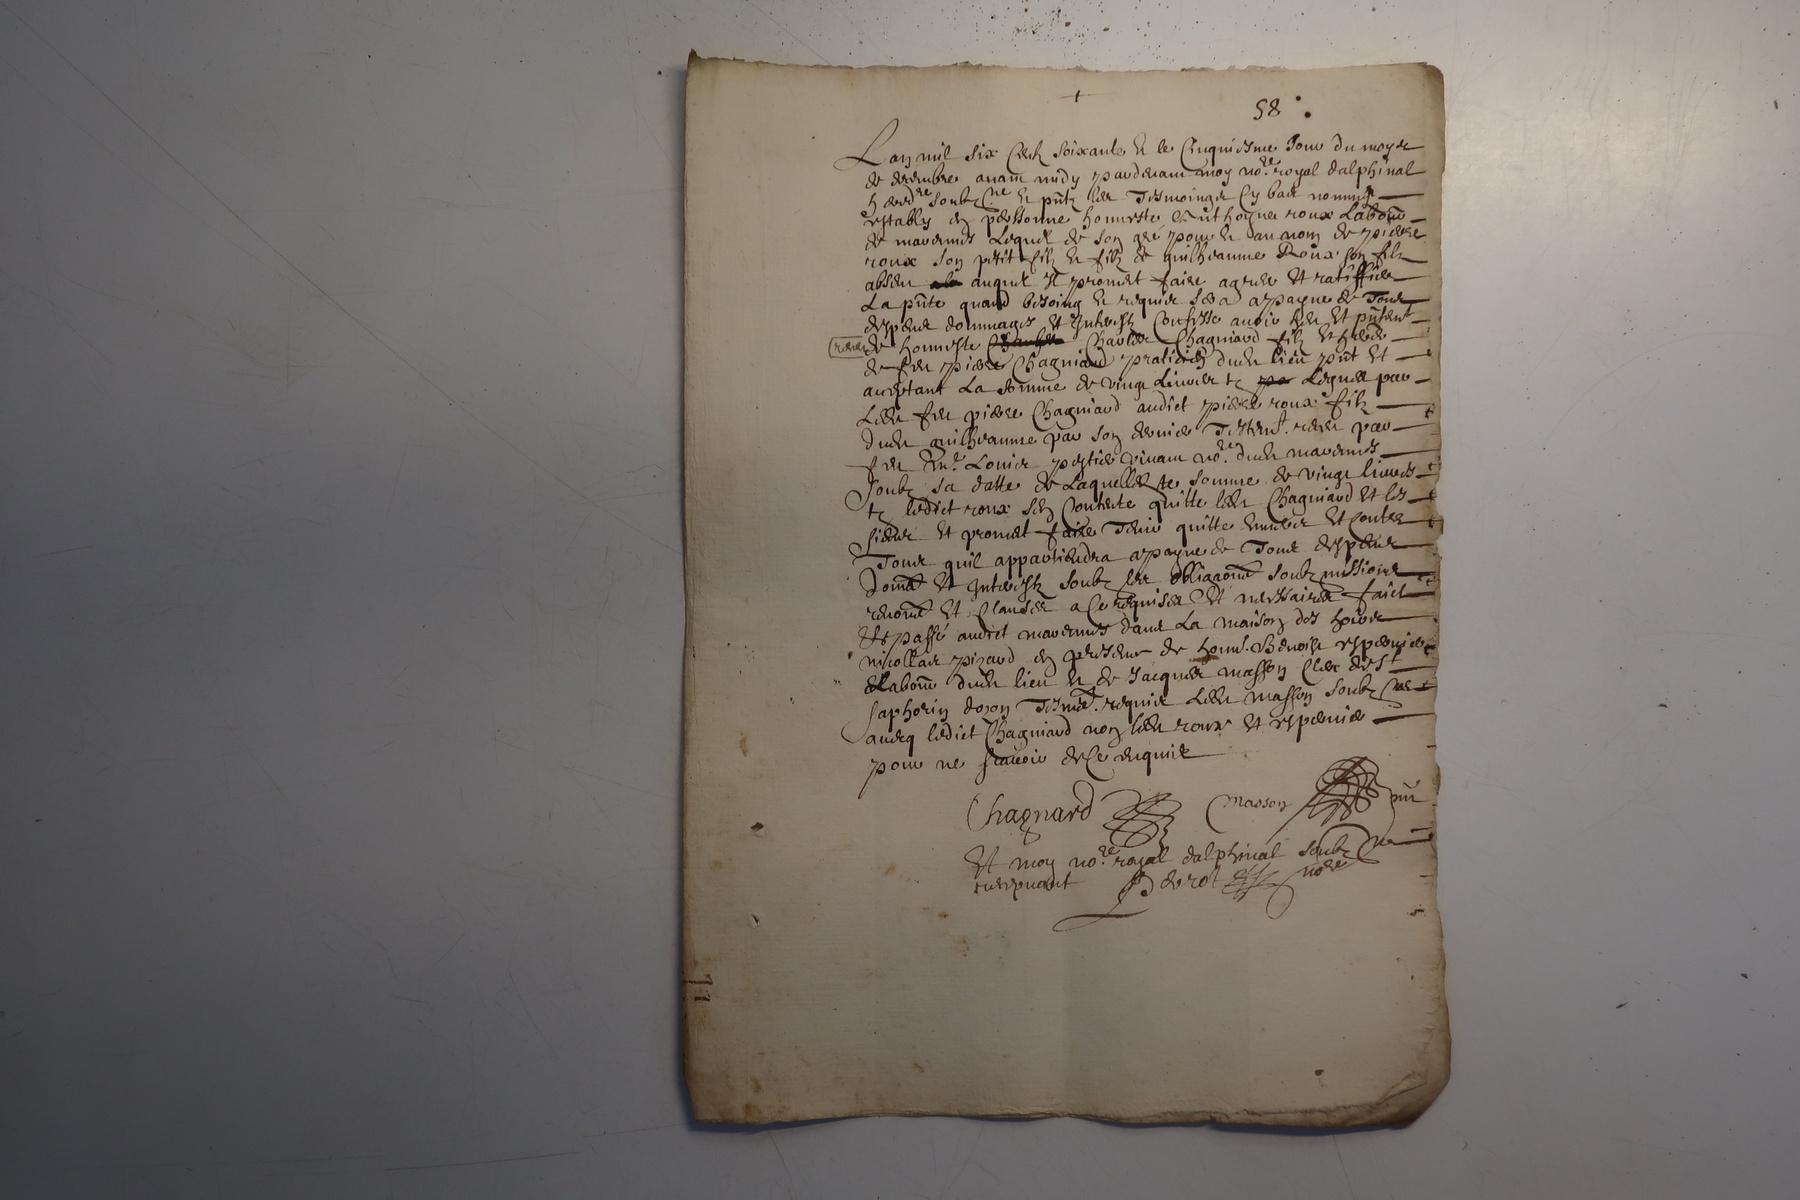 58
Lan mil six cent soixante et le cinquiesme Jour du moys
de decembre avant midy pardevant moy no.re royal dalphinal
soubz.ne et pnts les Tesmoingz cy bas nommez
estably en personne honneste Anthoyne roux Labour
de marennes Lequel de son gré pour et au nom de pierre
roux son petit filz et filz de guilheaume Roux son filz
absent auquel Il promet faire agreer et ratiffier
La pnte quand besoing et requis sera a payne de Tous
despens dommages et Interestz Confesse avoir heu et
de honneste Charles Chagniard filz et
de feu pierre Chagniard praticien dudit lieu pnt et
acceptant La somme de vingt Livres tz Legués par
Ledit feu pierre Chagniard audict pierre roux filz
dudit guilheaume par son dernier Testemt. receu par
feu me. Louis vivant no.re dudit marennes
soubz sa datte de Laquelle somme de vingt livres
tz ledict roux sen Contente quitte ledit Chagniard et les
siens et promet faire Tenir quitte envers et Contre
Tous quil appartiendra a payne de Tous despens
domes et Interestz soubz les obligaons soubzmissions
renons et Clauses a Ce requises et necessaires faict
et passé audict marennes dans La maison des hoirs
nicollas pizard en presence de honn. Benoist
Labour dudit lieu et de Jacques masson Clerc de St
saphorin dozon Tesmt. requis Ledit masson soubz.ne
avecq ledict Chagniard non ledit roux et
pour ne scavoir de Ce enquis
Chagnard masson
Et moy no.re royal dalphinal soubz.ne
recepvant no.re